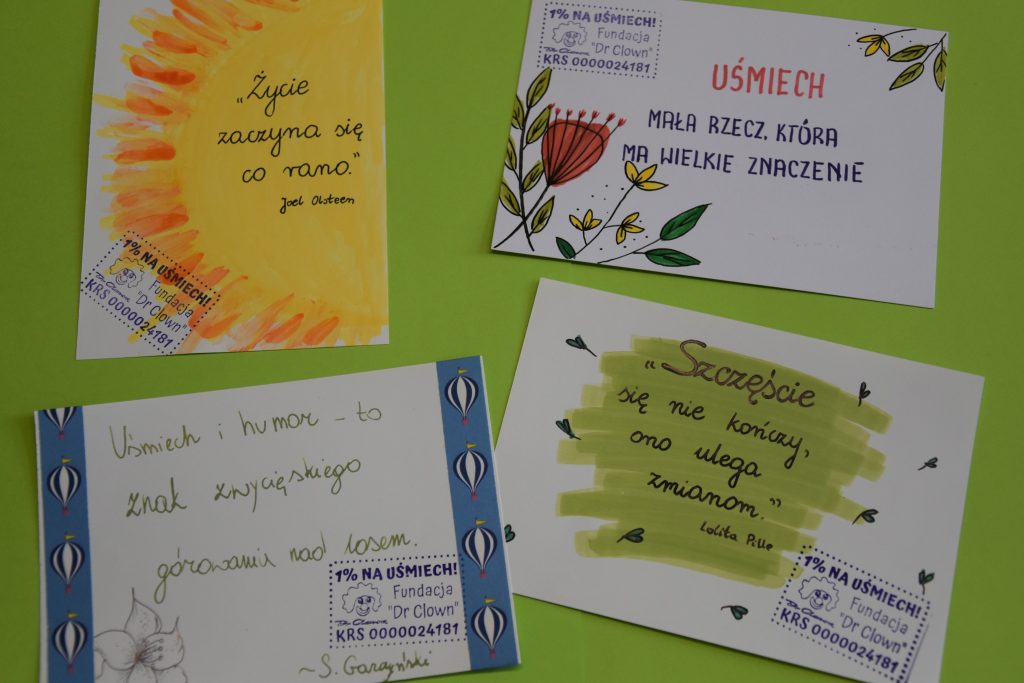 „Życie
zaczyna się
co rano."
Joel Olsteen
1% NA UŚMIECH!
Fundacja
"Dr Clown"
Dr Clown
KRS 0000024181
1% NA UŚMIECH!
Fundacja
"Dr Clown"
Dr Clown
KRS 0000024181
UŚMIECH
MAŁA RZECZ, KTÓRA
MA WIELKIE ZNACZENIE
Uśmiech i humor – to
znak zwycięskiego
górowania nad losem.
1% NA UŚMIECH!
Fundacja
"Dr Clown"
Dr Clown
KRS 0000024181
~S. Garczyński
„Szczęście
się nie kończy,
ono ulega
zmianom."
Lolita Pille
1% NA UŚMIECH!
Fundacja
"Dr Clown"
Dr Clown
KRS 0000024181